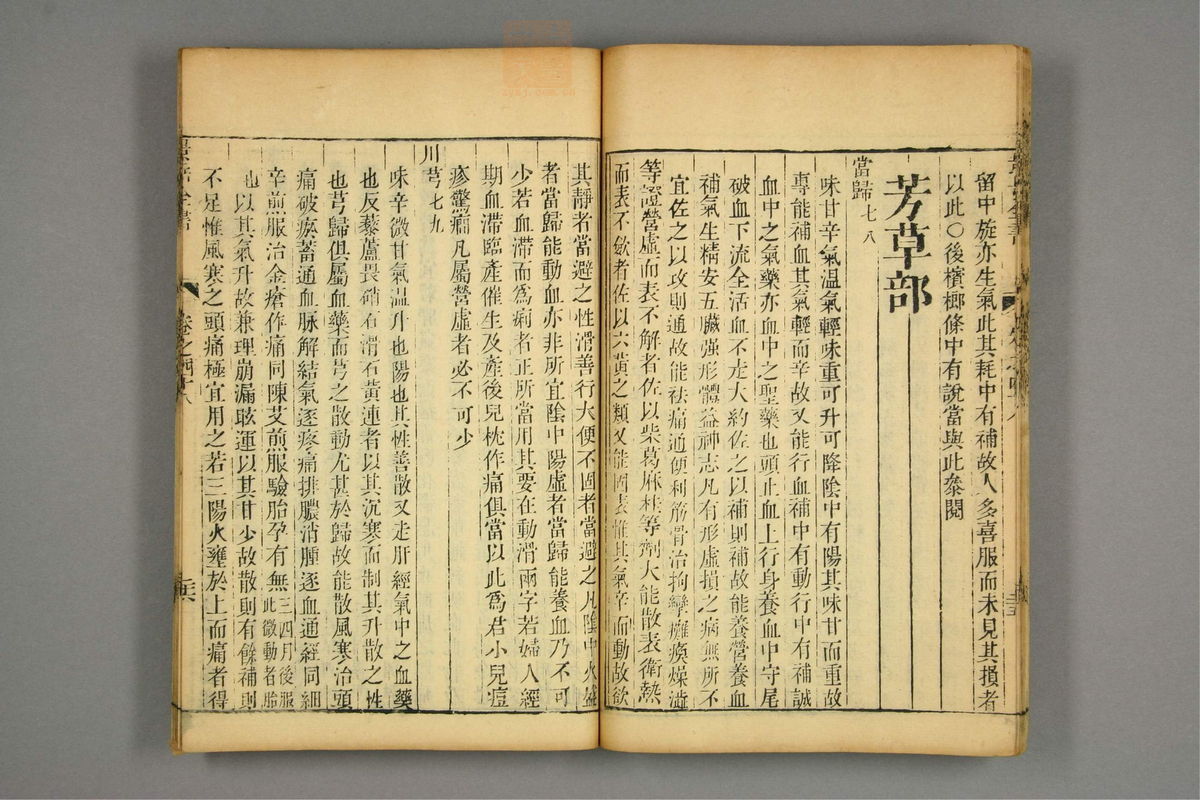 留中旋亦生氣此其耗中有補故人多喜服而未見其損者
以此○後檳榔條中有說當與此叅閱
芳草部
當歸 七八
味甘辛氣温氣輕味重可升可降陰中有陽其味甘而重故
專能補血其氣輕而辛故又能行血補中有動行中有補誠
血中之氣藥亦血中之聖藥也頭止血上行身養血中守尾
破血下流全活血不走大約佐之以補則補故能養營養血
補氣生精安五臟强形體益神志凡有形虛損之病無所不
宜佐之以攻則通故能祛痛通便利筋滑治拘攣癱瘓燥澁
等證營虛而表不解者佐以柴葛麻桂等劑大能散表衛熱
而表不歛者佐以六黃之類又能固表惟其氣辛而動故欲
其靜者當避之性滑善行大便不固者當避之凡陰中火盛
者當歸能動血亦非所宜陰中陽虛者當歸能養血乃不可
少若血滯而爲痢者正所當用其要在動滑兩字若婦人經
期血滯臨產催生及產後兒枕作痛俱當以此爲君小兒痘
疹驚癇凡屬營虛者必不可少
川芎 七九
味辛微甘氣温升也陽也其性善散又走肝經氣中之血藥
也反藜蘆畏硝石滑石黃連者以其沉寒而制其升散之性
也芎歸俱屬血藥而芎之散動尤甚於歸故能散風寒治頭
痛破瘀蓄通血脉解結氣逐疼痛排膿消腫逐血通經同細
辛煎服治金瘡作痛同陳艾煎服驗胎孕有無三四月後服此微動者胎
也以其氣升故兼理崩漏眩運以其甘少故散則有餘補則
不足惟風寒之頭痛極宜用之若三陽火壅於上而痛者得
景岳全書
卷之四十八
三六